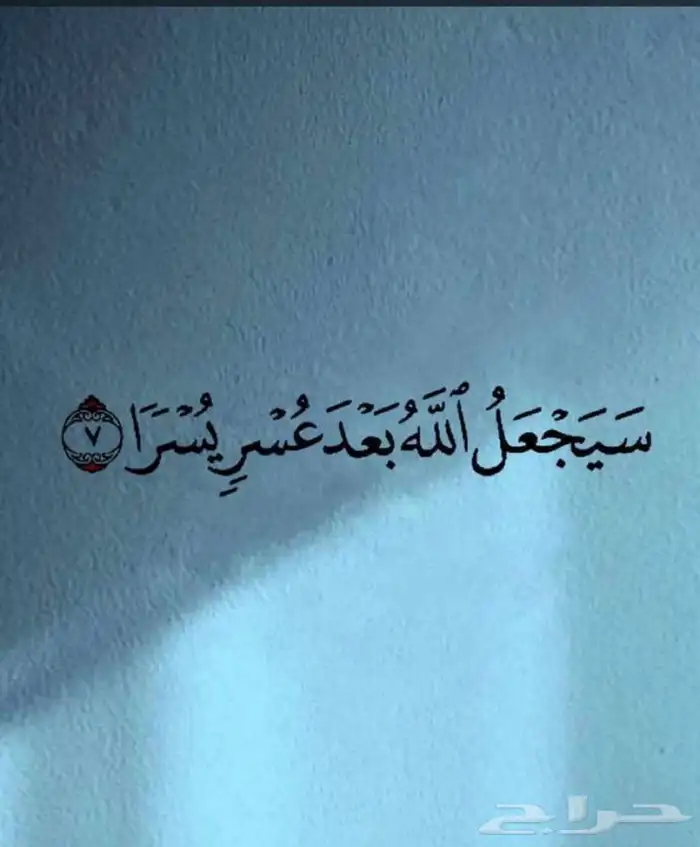 سَيَجْعَلُ ٱللَّهُ بَعْدَ عُسْرٍ يُسْرًا ٧
حراج